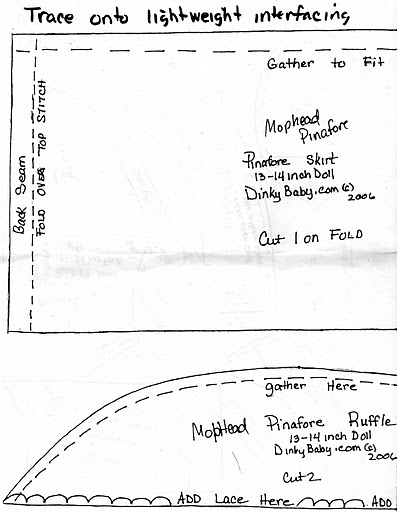 Trace onto lightweight interfacing
Gather to Fit
Back Seam
FOLD OVER TOP STITCH
Mophead
Pinafore
Pinafore Skirt
13-14 inch Doll
DinkyBaby.com (c)
2006
Cut 1 on FOLD
gather Here
MopHead Pinafore Ruffle
13-14 inch Doll
DinkyBaby.com (c)
2006
Cut 2
ADD Lace Here
ADD